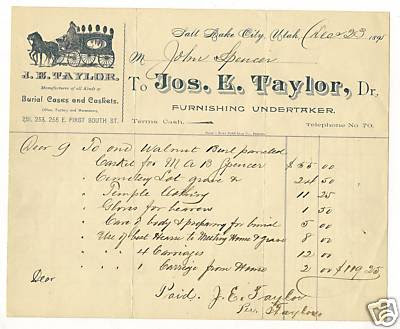 Salt Lake City, Utah, Dec 23 189
M John Spencer
To Jos. E. Taylor, Dr.
FURNISHING UNDERTAKER.
Terms Cash Telephone No. 70.
J. E. TAYLOR,
Manufacturer of all Kinds of
Burial Cases and Caskets.
251, 253, 255 E. FIRST SOUTH ST.
Decr 9 To one Walnut Burl paneled
Casket for M A B Spencer $55 00
" Cemetery Lot grave & 24 50
" Temple Clothing 11 25
" Gloves for bearers 1 50
" Care of body & preparing for burial 5 00
" Use of best Hearse to Meeting House & grave 8 00
" 4 Carriages 12 00
" 1 Carriage from House 2 00 $119.25
Decr
Paid. J. E. Taylor
Per Taylor